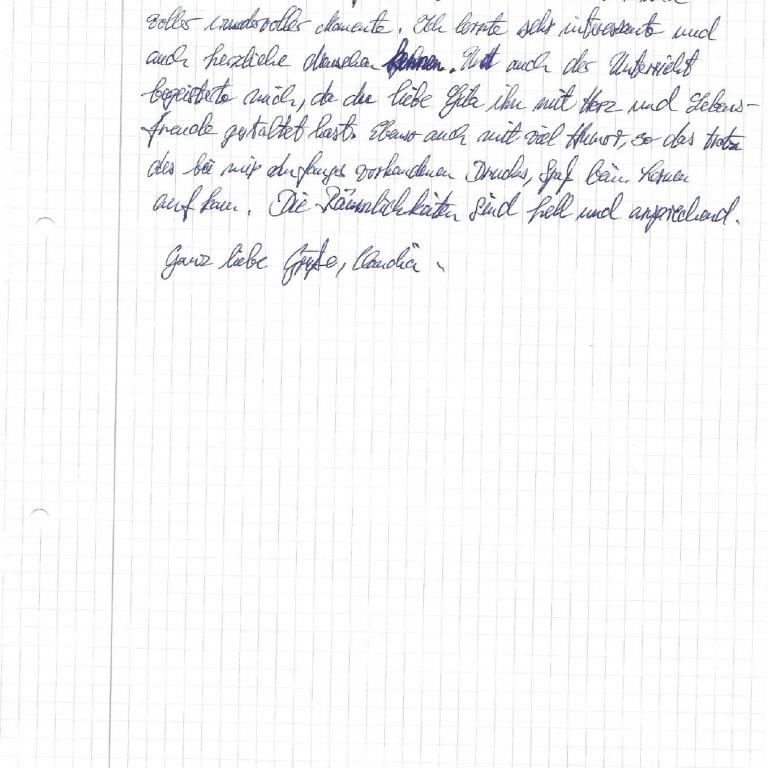 voller wundervoller Momente. Ich lernte sehr interessante und
auch herzliche Menschen kennen. Und auch der Unterricht
begeisterte mich, da du liebe Gita ihn mit Herz und Lebens-
freude gestaltet hast. Ebenso auch mit viel Humor, so das trotz
des bei mir anfangs vorhandenen Druckes, Spaß beim Lernen
auf kam. Die Räumlichkeiten sind hell und ansprechend.
Ganz liebe Grüße, Claudia